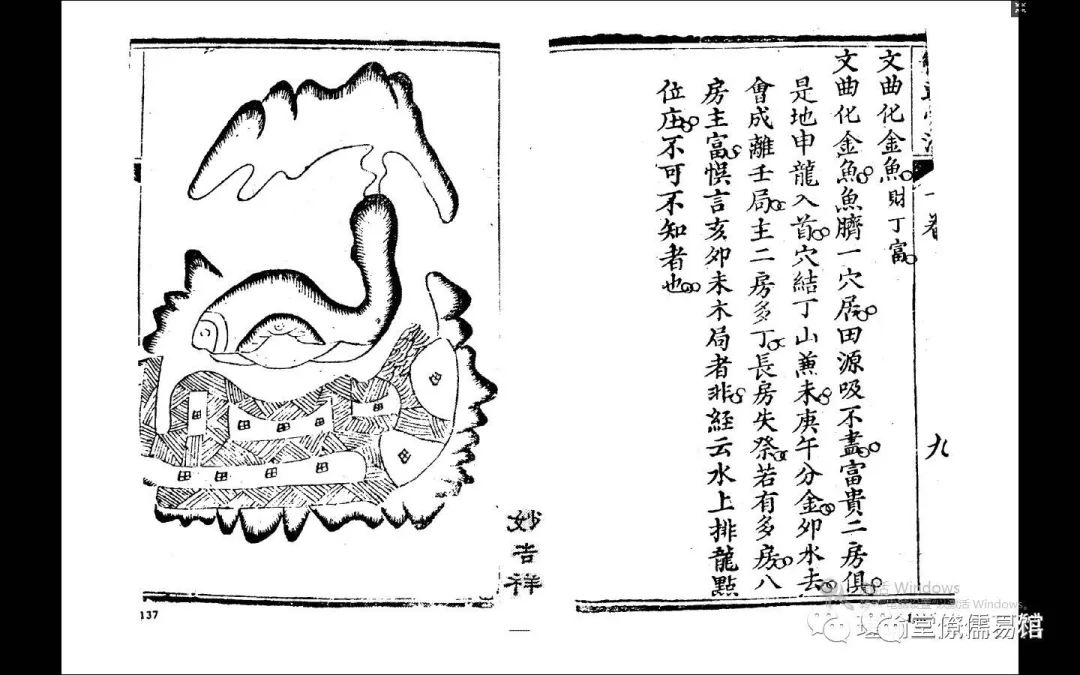 文曲化金魚財丁富
文曲化金魚魚臍一穴居田源吸不盡富貴二房俱
是地申龍入首穴結丁山兼未庚午分金卯水去
會成離壬局主二房多丁長房失祭若有多房八
房主富悞言亥卯未木局者非經云水上排龍點
位庄不可不知者也
九
妙吉祥
137
Windows
活 Windows
堂僚儒易馆